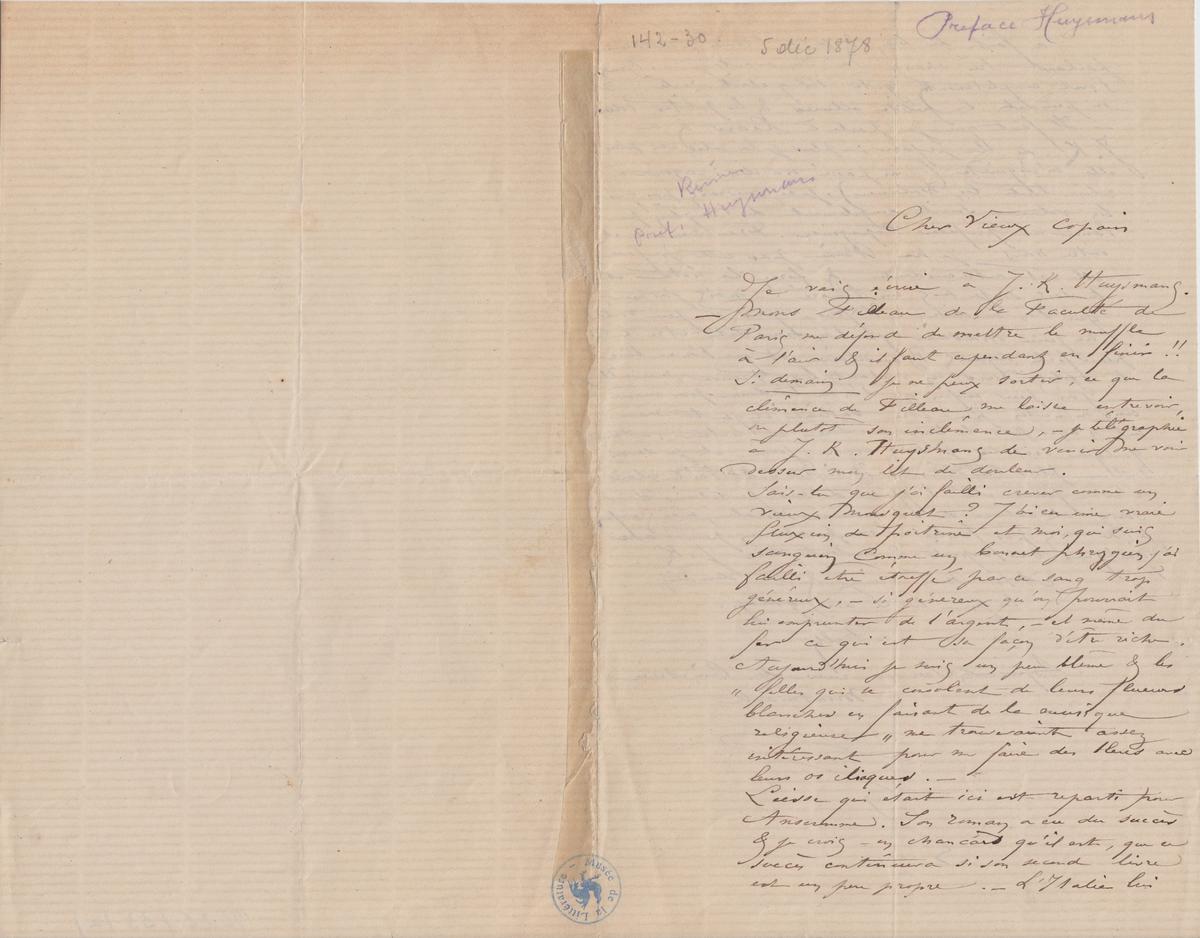 142-30
5 déc 1878
Preface Huysmans
Huysmans
préf.
Cher Vieux copain
Je vais écrire à J. K. Huysmans.
– Mons Filleau de la Faculté de
Paris me défend de mettre le muffle
à l'air & il faut cependant en finir !!
Si demain je ne peux sortir, ce que la
clémence de Filleau me laisse entrevoir,
ou plutot son inclémence, – je télégraphie
à J. K. Huysmans de venir me voir
dessur mon lit de douleur.
Sais-tu que j'ai failli crever comme un
vieux mousquet ? J'ai eu une vraie
fluxion de poitrine et moi, qui suis
sanguin comme un bonnet phrygien j'ai
failli être étouffé par ce sang trop
généreux, – si généreux qu'on pourrait
lui emprunter de l'argent, – et même du
fer ce qui est sa façon d'être riche.
Aujourd'hui je suis un peu blême & les
" filles qui se consolent de leurs flueurs
blanches en faisant de la musique
religieuse " me trouveraient assez
intéressant pour me faire des bleus avec
leurs os iliaques. –
Liesse qui était ici est reparti pour
Anseremme. Son roman a eu du succès
& je crois – en chançard qu'il est, que ce
succès continuera si son second livre
est un peu propre. – L'Italie lui
Musée de la Littérature